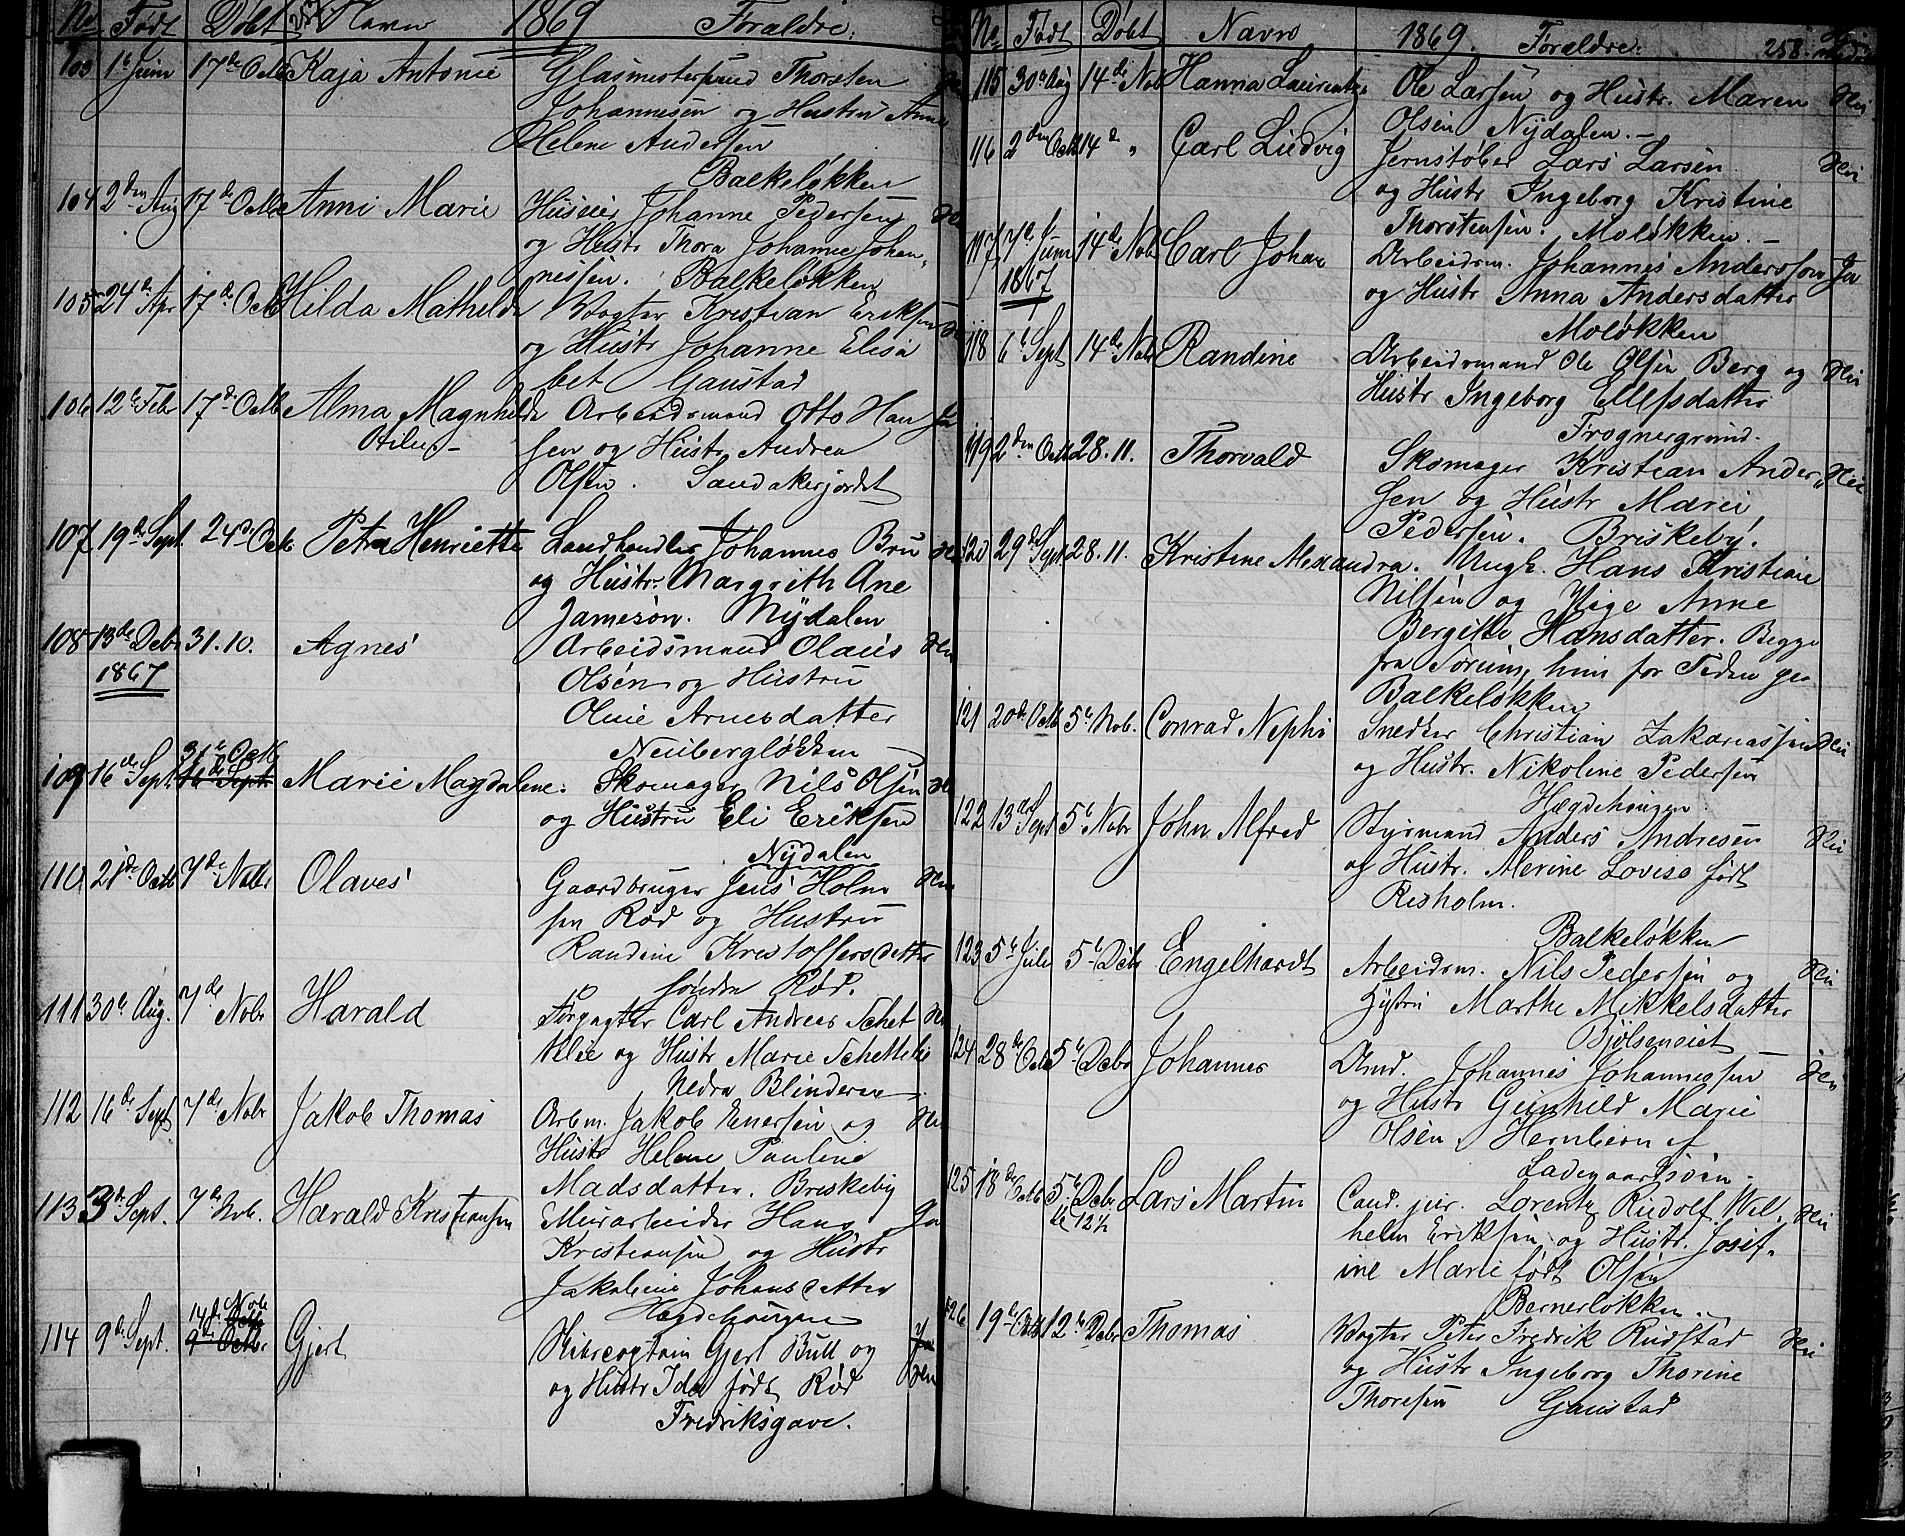 No Født Døbt Navn 1869 Forældre.
103 1ste Juni 17de Octb Kaja Antonie Glasmestersvend Thorsten
Johannesen og Hustru Anne
Helene Andersen
Balkeløkken
104 2den Aug 17de Octb Anni Marie Huseier Johanne Pedersen
og Hustr Thora Johanne Johan-
nessen. Balkeløkken
105 24de Apr 17de Octb Hilda Mathilde Vogter Kristian Eriksen
og Hustr Johanne Elisa
bet Gaustad
106 12te Febr 17de Octb Alma Magnhilde Arbeidsmand Otto Han Ja
Otilie sen og Hustr Andrea
Olsen. Sandakerjordet
107 19de Sept. 24de Octb Petra Henriette Landhandler Johannes Bru
og Hustr. Margrith Ane
Jameson. Nydalen
108 13de Debr 31.10. Agnes Arbeidsmand Olaus Nei
1867 Olsen og Hustru
Olene Arnesdatter
Neubergløkken
31te Octb
109 16de Sept. 16de Sept. Marie Magdalene. Skomager Nils Olsen
og Hustru Eli Eriksen
Nydalen
110 21de Octb 7de Nobr Olaves Gaardbruger Jens Holm Nei
sen Rød og Hustru
Randine Kristoffersdatter
søndre Rød.
111 30te Aug. 7de Nobr Harald Forpagter Carl Andreas Schet
telie og Hustr Marie Schettelie
Nedre Blindern
112 16de Sept 7de Nobr Jakob Thomas Arbm. Jakob Enersen og Nei
Hustr Helene Pauline
Madsdatter. Briskeby
113 3de Sept. 7de Nob. Harald Kristiansen Murarbeider Hans Ja
Kristiansen og Hustr
Jakobine Johansdatter
Hægdehaugen
14de Nobr
114 9de Sept. 9de Octbr Gjert Skibscaptain Gjert Bull og Ja
og Hustr Ida født Rød Nei
Fredriksgave.
No Født Døbt Navn 1869. Forældre. 258.
115 30te Aug 14de Nob Hanna Laurentze Ole Larsen og Hustr. Maren Nei
Olsen Nydalen.
116 2den Octb 14de " Carl Ludvig Jernstøber Lars Larsen Nei
og Hustr Ingeborg Kristine
Thorstensen. Moløkken.
117 7de Juni 14de Nob Carl Johan Arbeidsm. Johannes Andersson Ja
1867 og Hustr Anna Andersdatter
Moløkken
118 6te Sept 14de Nobr Randine Arbeidsmand Ole Olsen Berg og Nei
Hustr Ingeborg Ellefsdatter
Frognergrund.
119 2den Octb 28.11. Thorvald Skomager Kristian Ander- Nei
sen og Hustr Marie
Pedersen. Briskeby.
120 29de Sept 28.11. Kristine Alexandra. Ungk. Hans Kristian
Nilsen og Pige Anne
Bergitte Hansdatter. Begge
fra Sørum, hun for Tiden paa
Balkeløkken
121 20de Octb 5te Nob. Conrad Nephi Snedker Christian Zakariassen Nei
og Hustr. Nikoline Pedersen
Hægdehaugen.
122 13de Sept 5te Nobr John Alfred Styrmand Anders Andresen Nei
og Hustr. Merine Lovise født
Risholm.
Balkeløkken
123 5te Juli 5te Debr Engelhardt Arbeidsm. Nils Pedersen og Nei
Hustru Marthe Mikkelsdatter
Bjølseneiet
124 28de Octb 5te Debr Johannes Armd. Johannes Johannessen Nei
og Hustr Gunhild Marie
Olsen
Ladegaardsøen
125 18de Octb 5te Debr. Lars Martin Cand. jur. Lorentz Rudolf Wil- Nei
kl 12½ helm Eriksen og Hustr. Josef-
ine Marie født Olsen
Bernerløkken.
126 19de Octb 12te Debr Thomas Vogter Peter Fredrik Rudstad Nei
og Hustr Ingeborg Thorine
Thoresen Gaustad